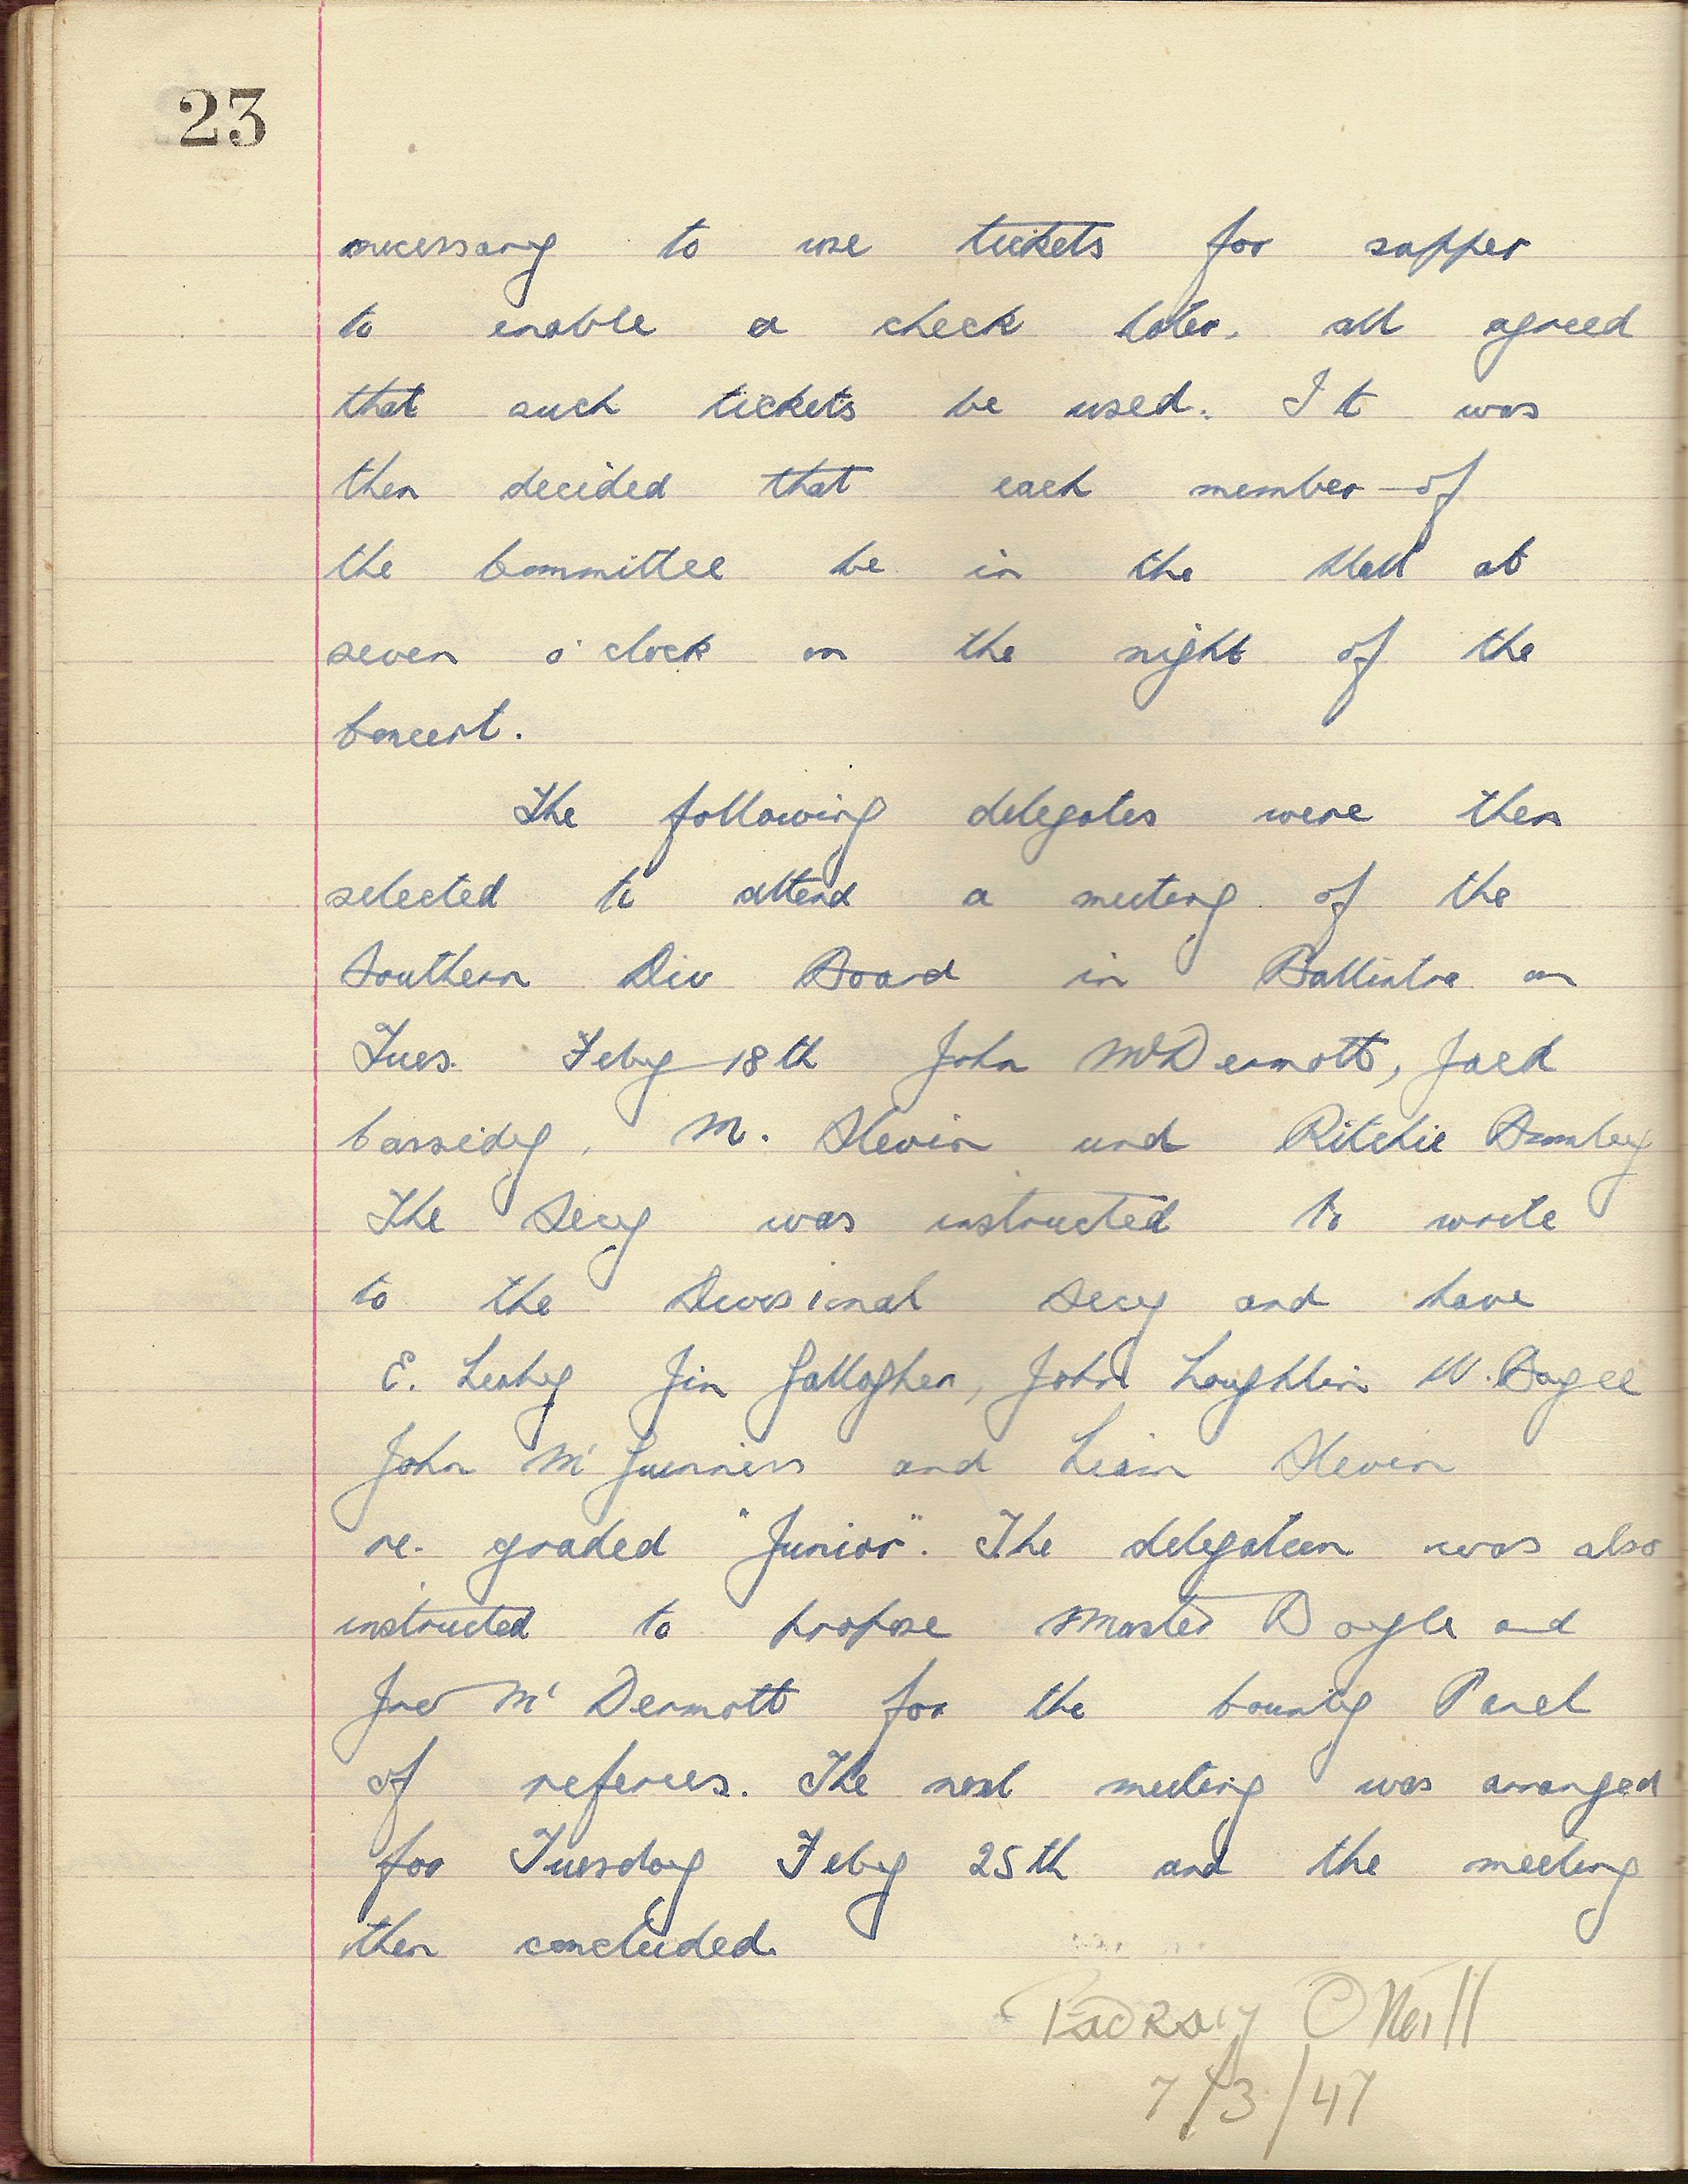 23
necessary to use tickets for supper
to enable a check later. all agreed
that such tickets be used. It was
then decided that each member of
the Committee be in the Hall at
seven o'clock on the night of the
Concert.
The following delegates were then
selected to attend a meeting of the
Southern Div Board in Ballintra on
Tues. Feby 18th John McDermott, Jack
Cassidy, M. Slevin and Ritchie
The Secy was instructed to write
to the Divisional Secy and have
E. Leahy Jim Gallagher, John Loughlin W. Bogle
John Mc Guinness and Liam Slevin
re-graded "Junior". The delegation was also
instructed to propose Master Boyle and
Jno Mc Dermott for the County Panel
of referees. The next meeting was arranged
for Tuesday Feby 25th and the meeting
then concluded.
Padraig O Neill
7/3/47